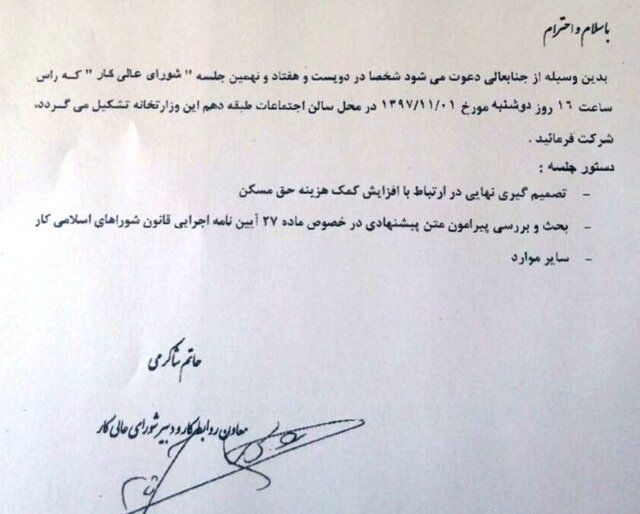 باسلام و احترام
بدین وسیله از جنابعالی دعوت می شود شخصا در دویست و هفتاد و نهمین جلسه " شورای عالی کار " که راس
ساعت ۱۶ روز دوشنبه مورخ ۱۳۹۷/۱۱/۰۱ در محل سالن اجتماعات طبقه دهم این وزارتخانه تشکیل می گردد،
شرکت فرمائید .
دستور جلسه :
- تصمیم گیری نهایی در ارتباط با افزایش کمک هزینه حق مسکن
- بحث و بررسی پیرامون متن پیشنهادی در خصوص ماده ۲۷ آیین نامه اجرایی قانون شوراهای اسلامی کار
- سایر موارد
حاتم شاکرمی
معاون روابط کار و دبیر شورای عالی کار